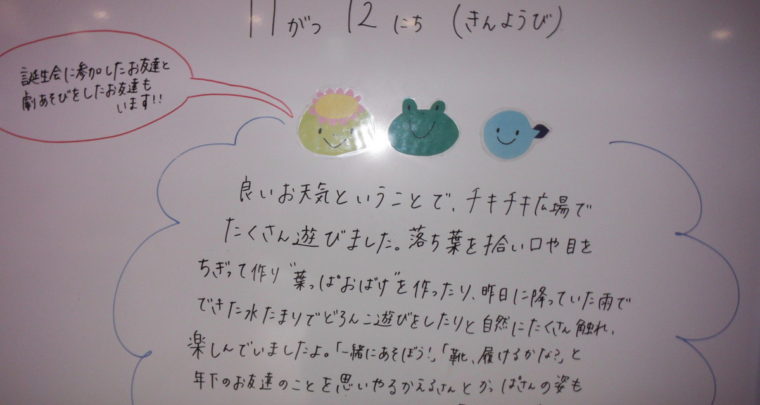 11がつ 12にち (きんようび)
誕生会に参加したお友達と
劇あそびをしたお友達も
います!!
良いお天気ということで、チキチキ広場で
たくさん遊びました。落ち葉を拾い口や目を
ちぎって作り"葉っぱおばけ"を作ったり、昨日に降っていた雨で
できた水たまりでどろんこ遊びをしたりと自然にたくさん触れ、
楽しんでいましたよ。「一緒にあそぼう!」「靴、履けるかな?」と
年下のお友達のことを思いやるかえるさんとかっぱさんの姿も